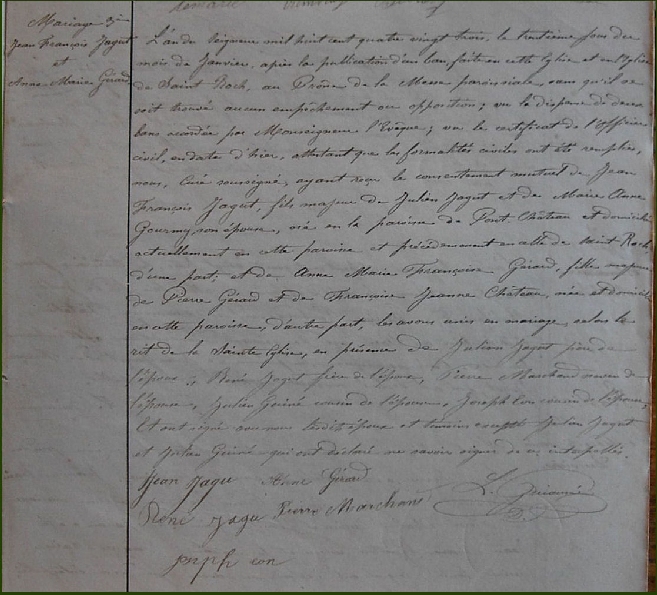 Mariage 3e
Jean François Jagut
et
Anne-Marie Gérard
L'an du Seigneur mil huit cent quatre vingt trois, le trentième jour du
mois de Janvier, après la publication d'un ban, faite en cette Eglise et en l'Eglise
de Saint Roch, au Prône de la Messe paroissiale, sans qu'il se
soit trouvé aucun empêchement ou opposition; vu la dispense de deux
bans accordée par Monseigneur l'Evêque; vu le certificat de l'Officier
civil, en date d'hier, attestant que les formalités civiles ont été remplies,
nous, Curé soussigné, ayant reçu le consentement mutuel de Jean
François Jagut, fils majeur de Julien Jagut et de Marie Anne
Gourmy, son épouse, né en la paroisse de Pont Château et domicilié
actuellement en cette paroisse et précédemment en celle de Saint Roch,
d'une part, et de Anne Marie Françoise Gérard, fille majeure
de Pierre Gérard et de Françoise Jeanne Château, née et domiciliée
en cette paroisse, d'autre part, les avons unis en mariage, selon le
rit de la Sainte Eglise, en présence de Julien Jagut père de
l'époux, René Jagut frère de l'époux, Pierre Marchand de
l'épouse, Julien Guiné cousin de l'épouse, Joseph cousin de l'épouse,
et ont signé avec nous lesdits époux et témoins excepté Julien Jagut
et Julien Guiné qui ont déclaré ne savoir signer de ce interpellés.
Jean Jagu Anne Gérard
René Jagu Pierre Marchand